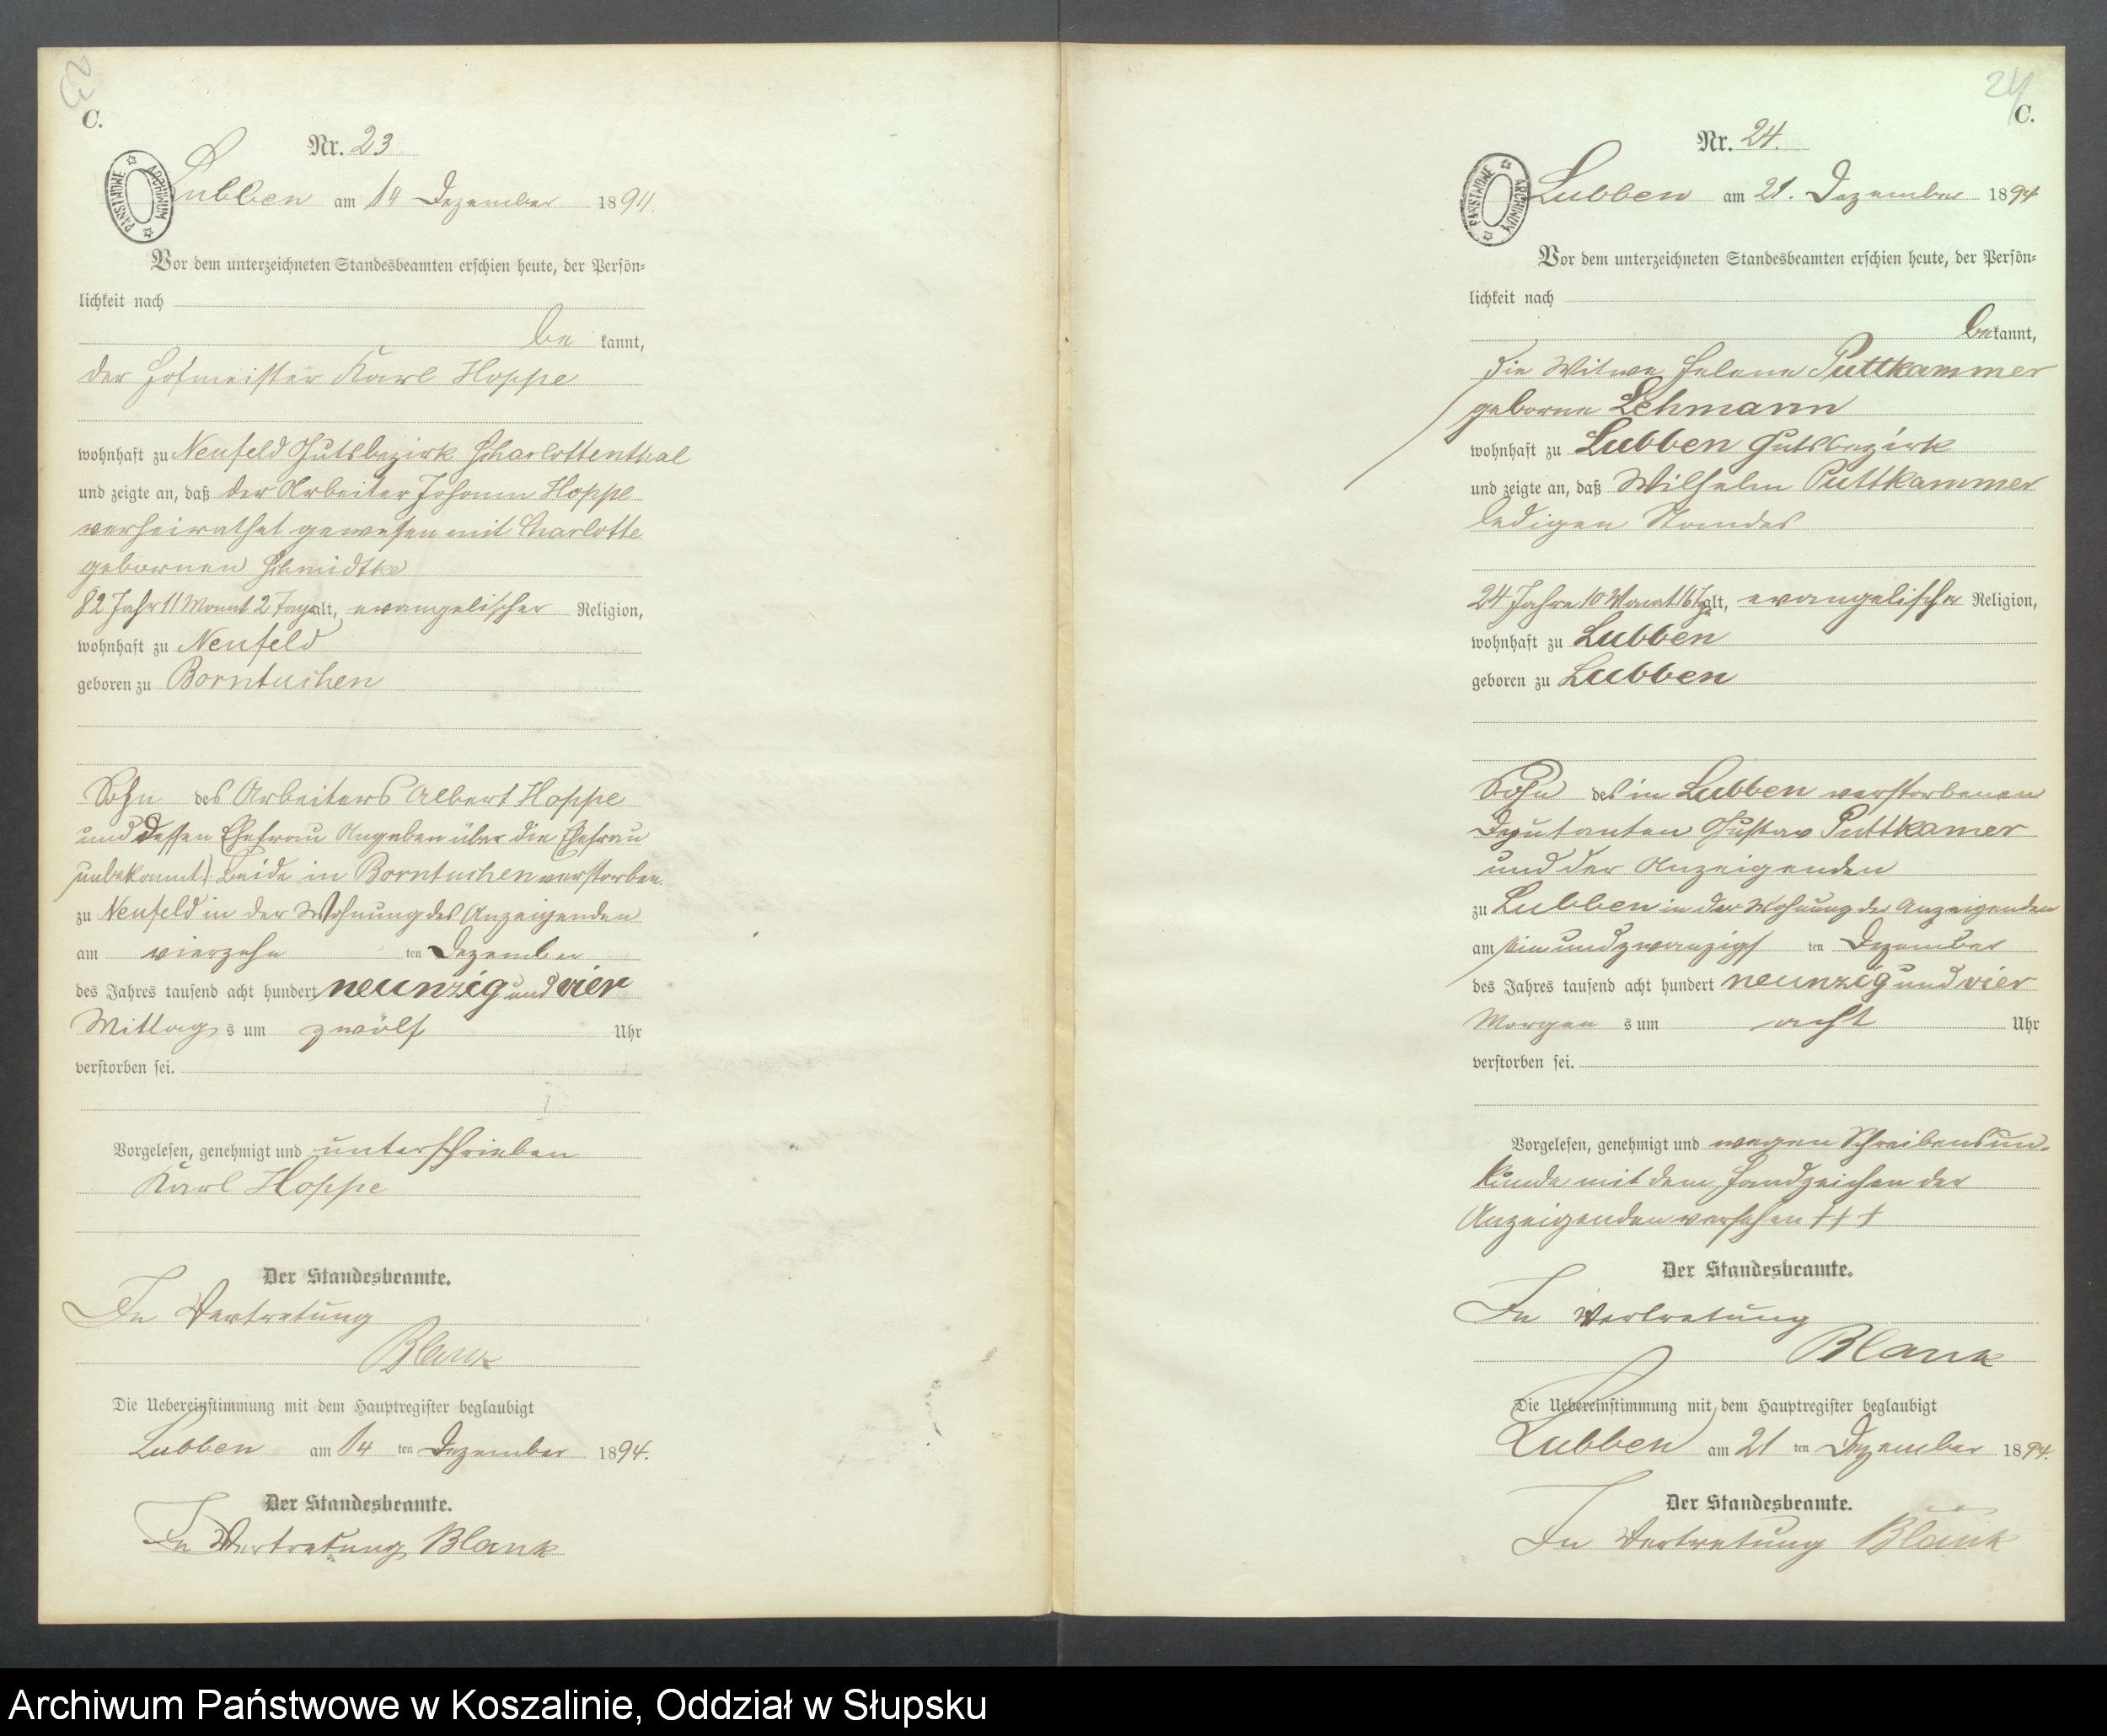 23
C.
Nr. 23
ARCHIWUM PAŃSTWOWE
Lubben am 14 Dezember 1894
Vor dem unterzeichneten Standesbeamten erschien heute, der Persön-
lichkeit nach
be kannt,
der Hofmeister Karl Hoppe
wohnhaft zu Neufeld Gutsbezirk Scharlottenthal
und zeigte an, daß der Arbeiter Johann Hoppe
verheirathet gewesen mit Charlotte
gebornen Schmidtke
82 Jahr 11 Monat 2 Tage alt, evangelischer Religion,
wohnhaft zu Neufeld
geboren zu Borntuchen
Sohn des Arbeiters Albert Hoppe
und dessen Ehefrau Angaben über die Ehefrau
unbekannt) beide in Borntuchen verstorben
zu Neufeld in der Wohnung des Anzeigenden
am vierzehn ten Dezember
des Jahres tausend acht hundert neunzig und vier
Mittag s um zwölf Uhr
verstorben sei.
Vorgelesen, genehmigt und unterschrieben
Karl Hoppe
Der Standesbeamte.
In Vertretung
Blank
Die Uebereinstimmung mit dem Hauptregister beglaubigt
Lubben am 14 ten Dezember 1894.
Der Standesbeamte.
In Vertretung Blank
24
C.
Nr. 24.
ARCHIWUM PAŃSTWOWE
Lubben am 21. Dezember 1894
Vor dem unterzeichneten Standesbeamten erschien heute, der Persön-
lichkeit nach
bekannt,
die Witwe Helene Puttkammer
geborne Lehmann
wohnhaft zu Lubben Gutsbezirk
und zeigte an, daß Wilhelm Puttkammer
ledigen Standes
24 Jahre 10 Monat 16 Tg alt, evangelischer Religion,
wohnhaft zu Lubben
geboren zu Lubben
Sohn des in Lubben verstorbenen
Deputanten Gustav Puttkamer
und der Anzeigenden
zu Lubben in der Wohnung der Anzeigenden
am einundzwanzigs ten Dezember
des Jahres tausend acht hundert neunzig und vier
Morgen s um acht Uhr
verstorben sei.
Vorgelesen, genehmigt und wegen Schreibensun-
kunde mit dem Handzeichen der
Anzeigenden versehen +++
Der Standesbeamte.
In Vertretung
Blank
Die Uebereinstimmung mit dem Hauptregister beglaubigt
Lubben am 21 ten Dezember 1894.
Der Standesbeamte.
In Vertretung Blank
Archiwum Państwowe w Koszalinie, Oddział w Słupsku